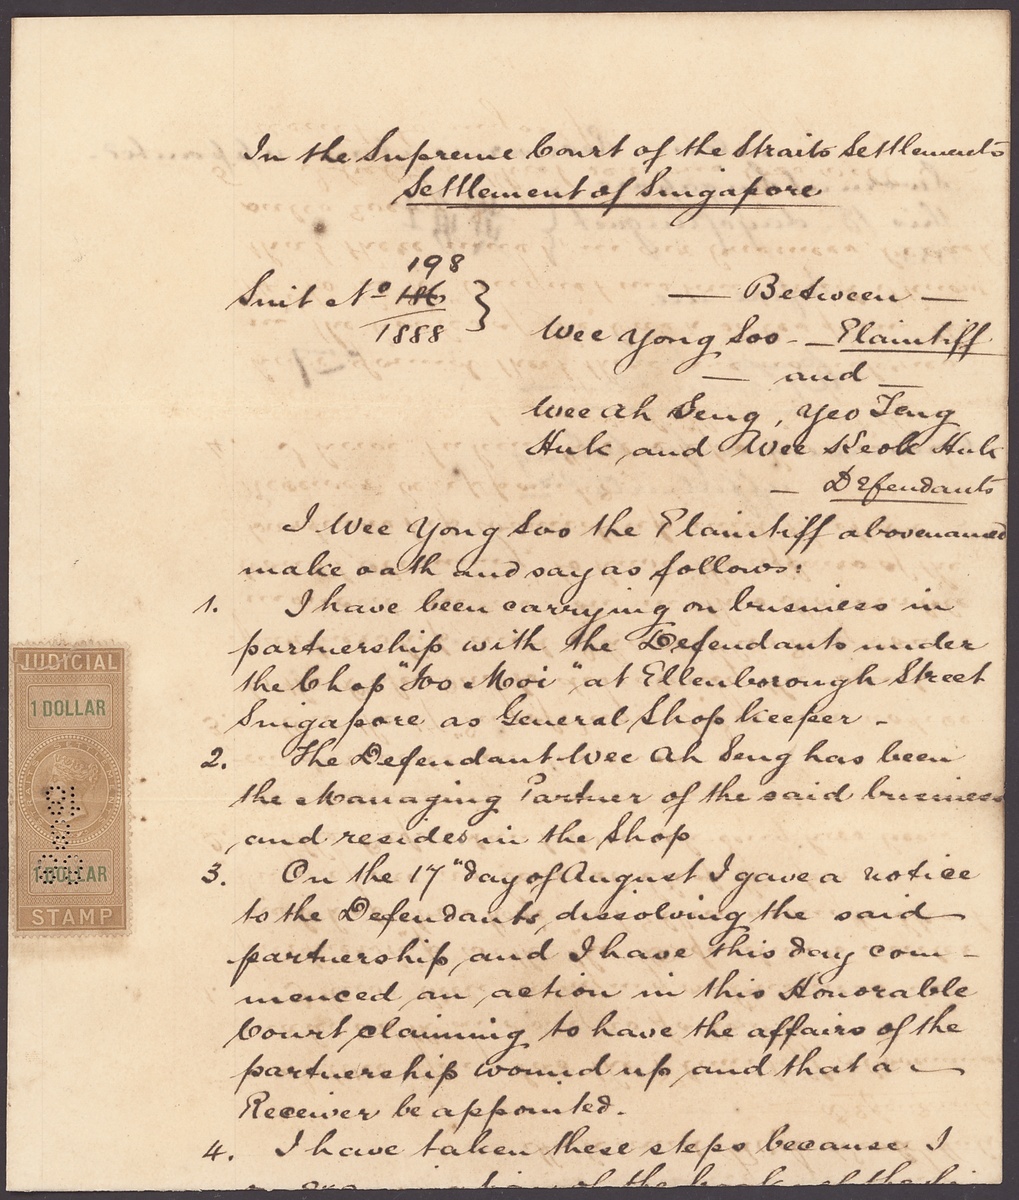 In the Supreme Court of the Straits Settlements
Settlement of Singapore
198
Suit No 186
1888
— Between —
Wee Yong Soo - Plaintiff
— and —
Wee Ah Seng, Yeo Teng
Huk and Wee Keok Huk
— Defendants
I Wee Yong Soo the Plaintiff abovenamed
make oath and say as follows:
1. I have been carrying on business in
partnership with the Defendants under
the Chop "Soo Moi" at Ellenborough Street
Singapore as General Shop keeper -
2. The Defendant Wee Ah Seng has been
the Managing Partner of the said business
and resides in the Shop
3. On the 17" day of August I gave a notice
to the Defendants, dissolving the said
partnership and I have this day com-
menced an action in this Honorable
Court claiming to have the affairs of the
partnership wound up and that a
Receiver be appointed.
4. I have taken these steps because I
of the books of the
JUDICIAL
1 DOLLAR
1 DOLLAR
STAMP